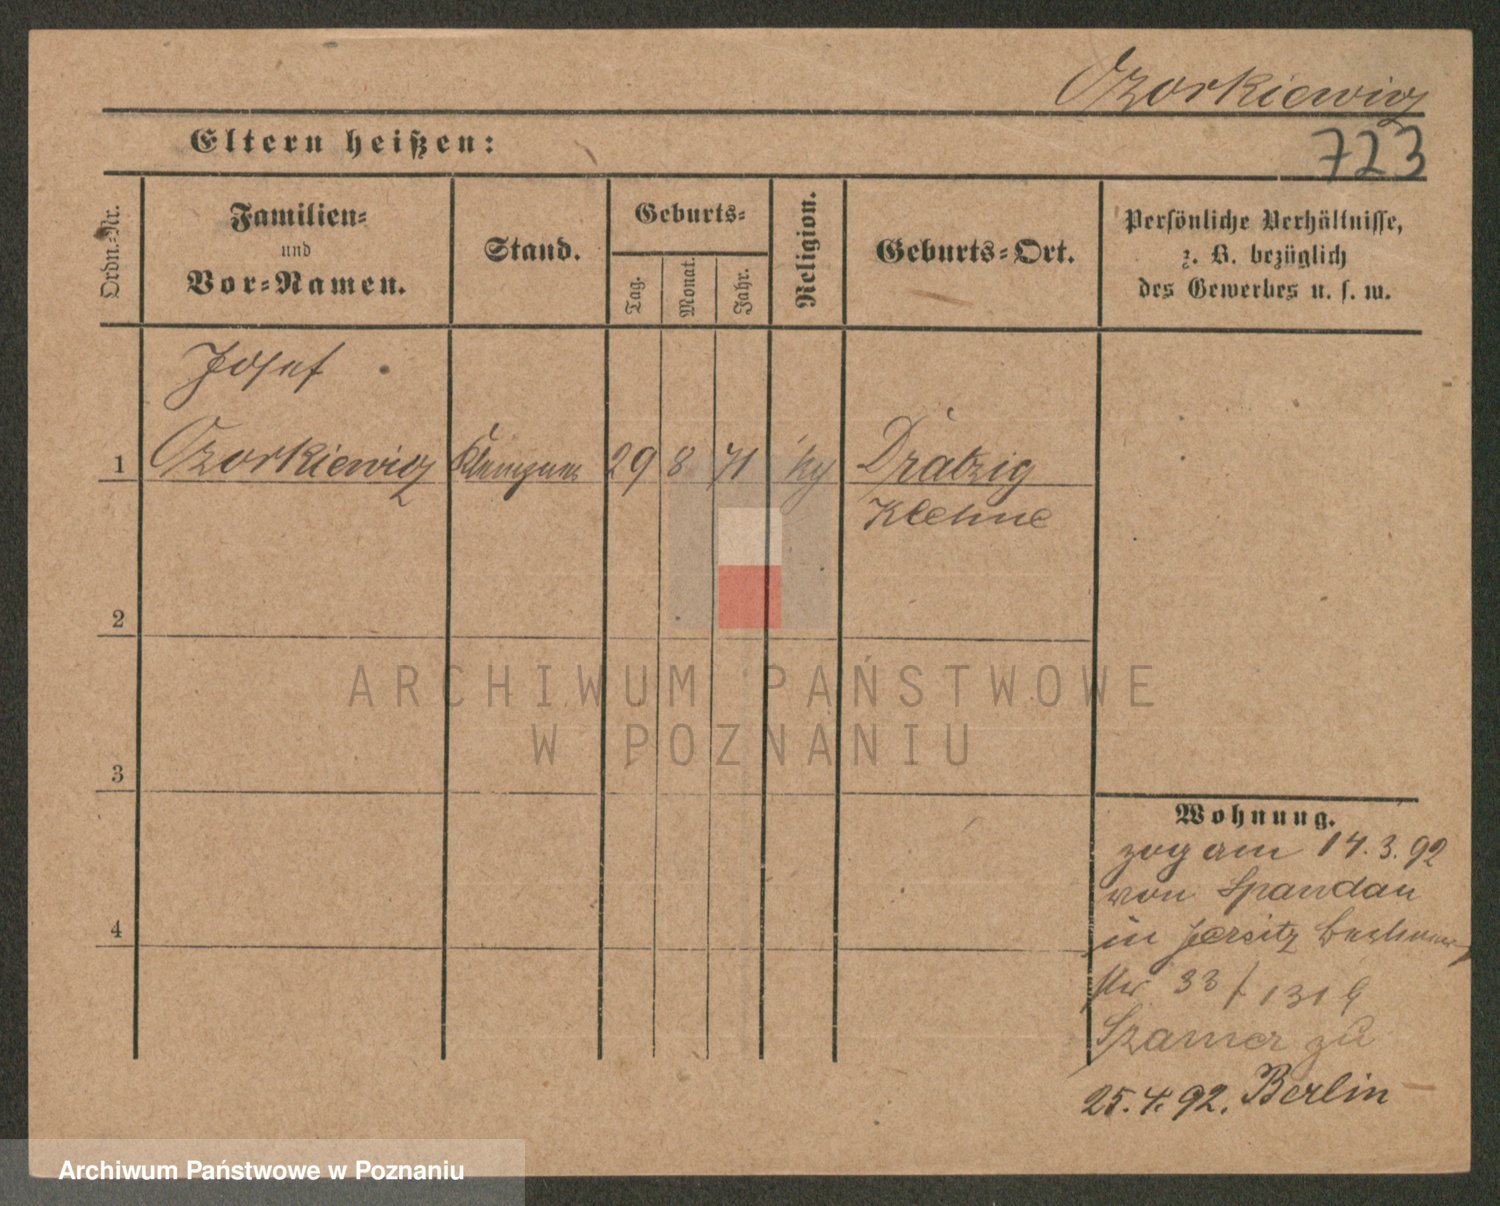 Ozorkiewicz
Eltern heißen:
723
Ordn.-Nr.
Familien-
und
Vor-Namen.
Stand.
Geburts-
Tag.
Monat.
Jahr.
Religion.
Geburts-Ort.
Persönliche Verhältnisse,
z. B. bezüglich
des Gewerbes u. s. w.
Josef
1 Ozorkiewicz 29 8 71 Dratzig
2
3
4
Wohnung.
zog am 14.3.92
von Spandau
in Jersitz
33 /
zu
25.4.92. Berlin
ARCHIWUM PAŃSTWOWE
W POZNANIU
Archiwum Państwowe w Poznaniu